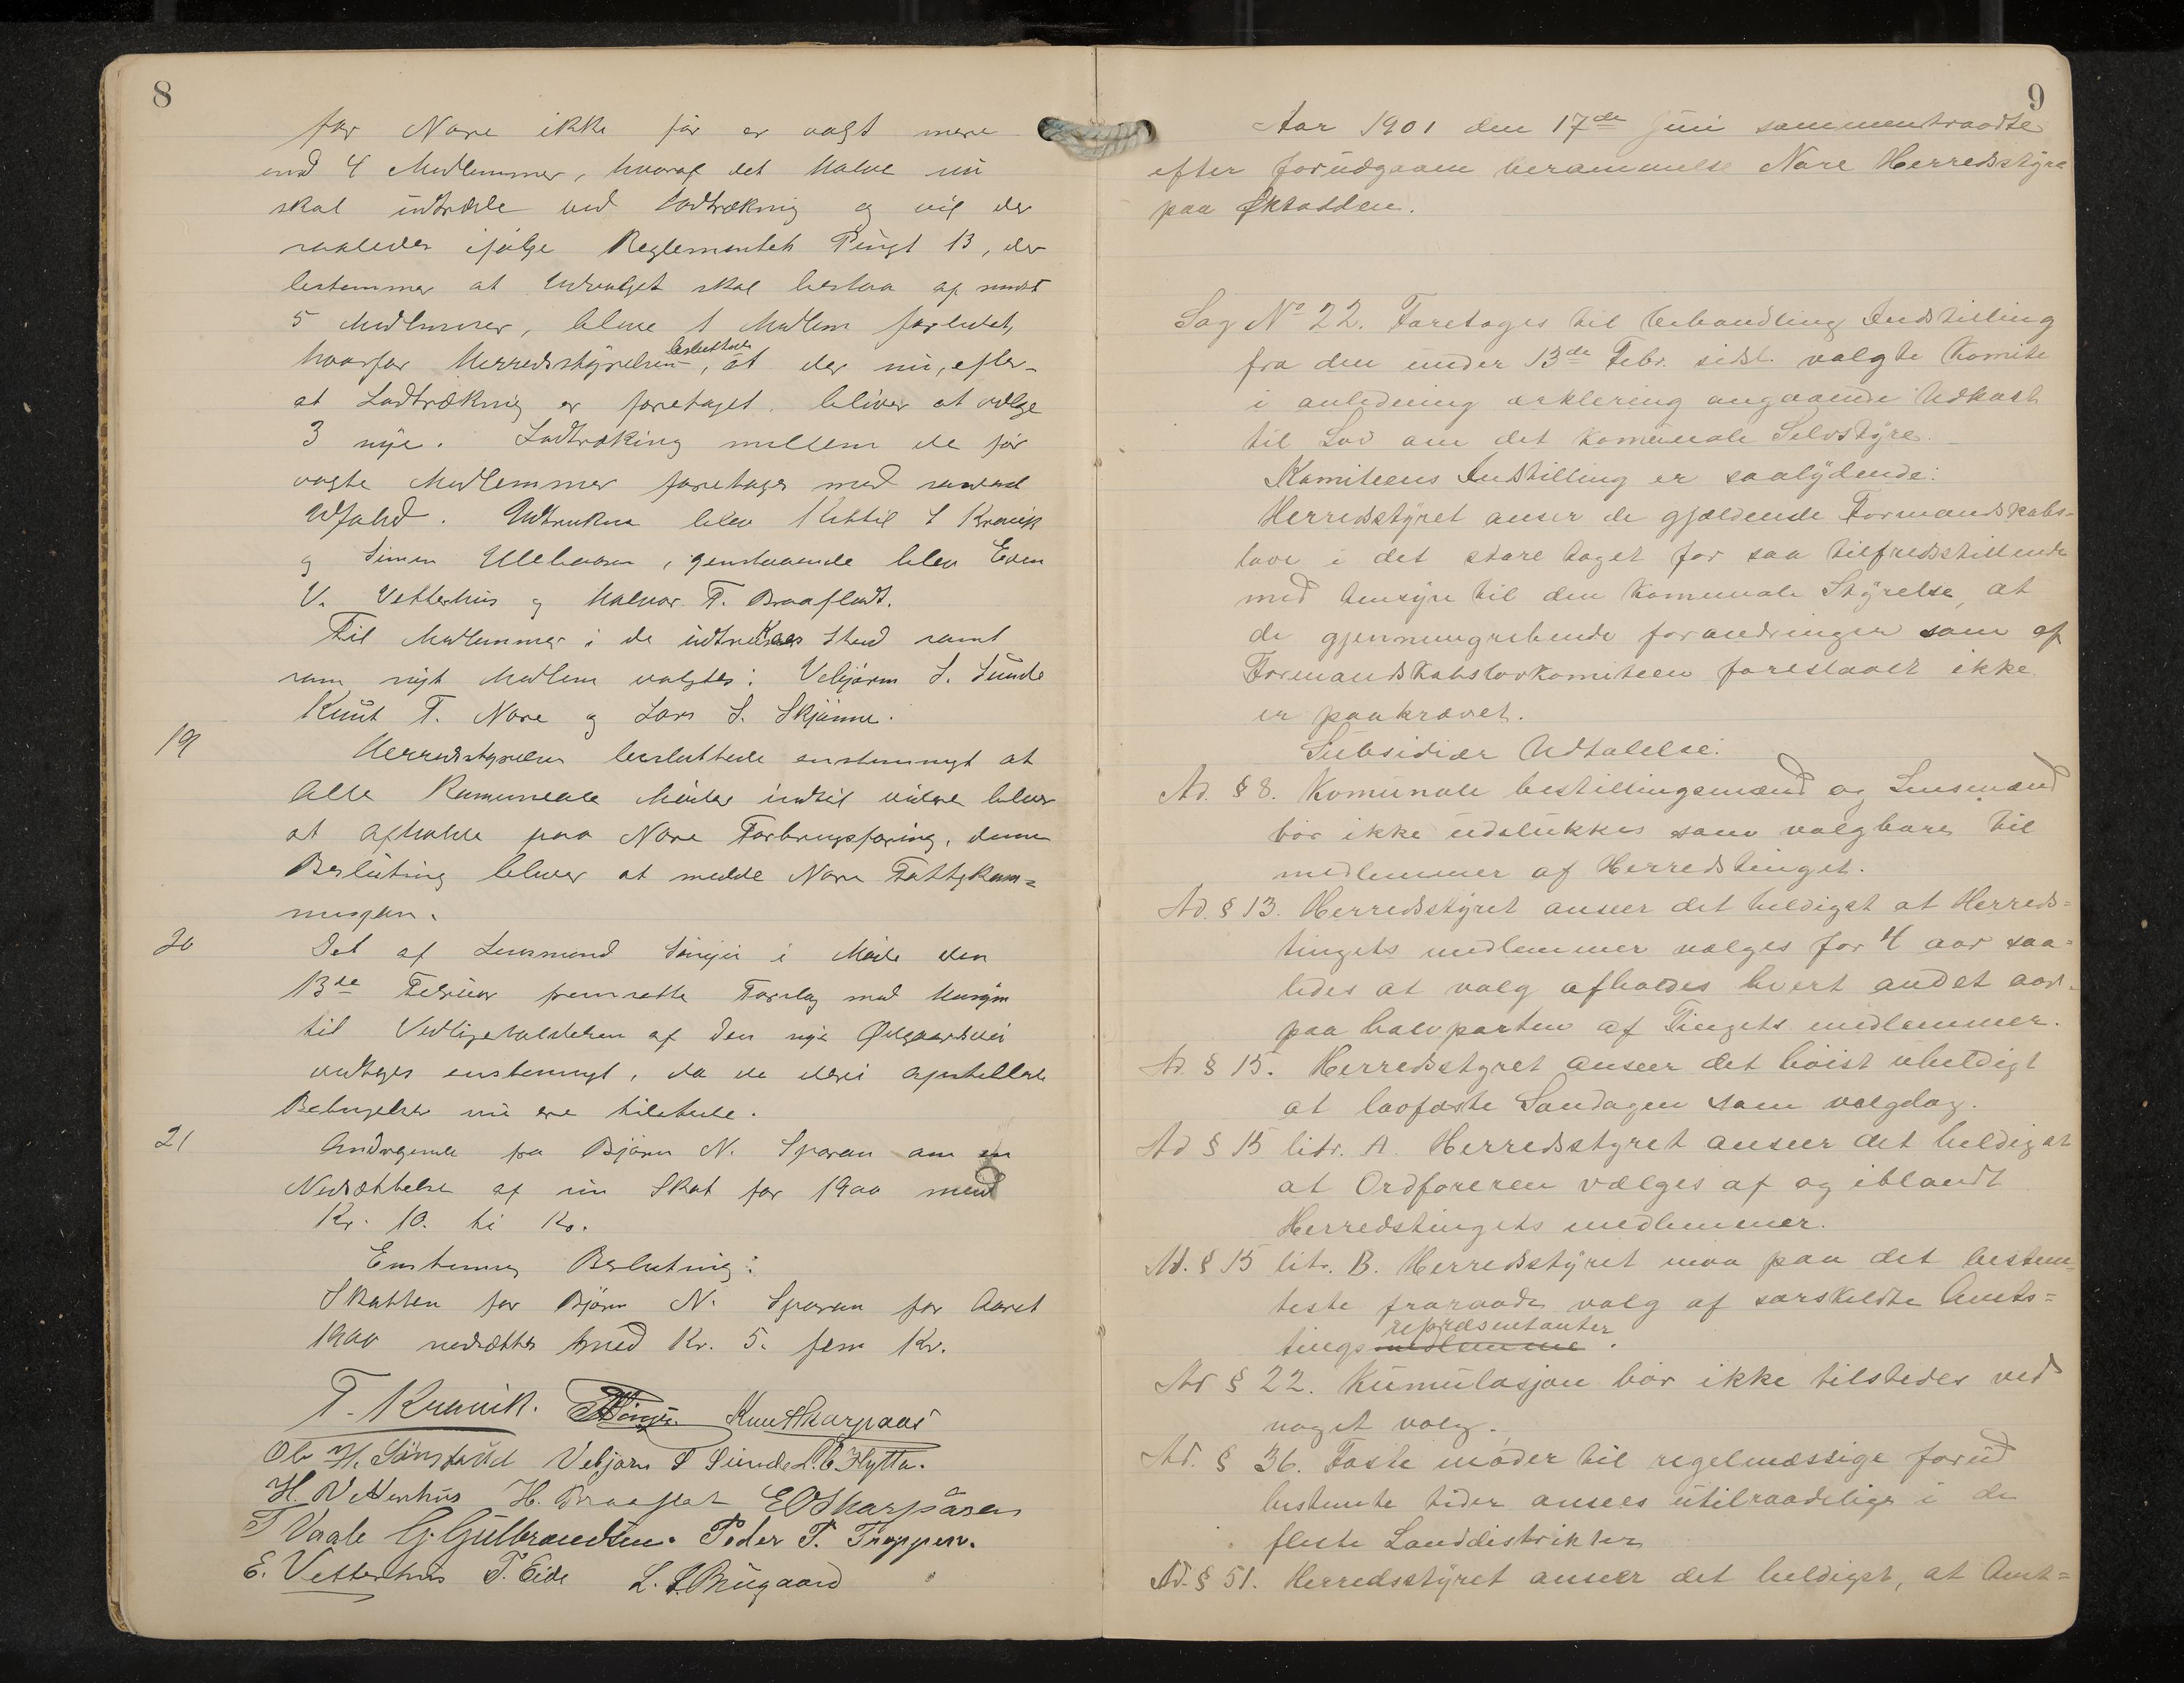 8
for Nore ikke før er valgt mere
end 4 Medlemmer, hvoraf det halve nu
skal udtræde ved Lodtrækning og vil der
saaledes ifølge Reglementets Pungt 13, der
bestemmer at Udvalget skal bestaa af mindst
5 Medlemmer, blive 1 Medlem forlidet,
hvorfor Herredsstyrelsen besluttede, at der nu, efter-
at Lodtrækning er foretaget, bliver at vælge
3 nye. Lodtrækning mellem de før
valgte Medlemmer foretages med saadant
Udfald. Udtrukne blev Kittil T Kravik
og Simen Ulleberen, gjenstaaende blev Even
V. Vetterhus og Halvor T. Braafladt.
Til Medlemmer i de udtrukne Sted samt
som nyt Medlem valgtes: Vebjørn S. Sunde
Knut T. Nore og Lars S. Skjønne.
19
Herredsstyrelsen besluttede enstemmigt at
alle Kommunale Møder indtil videre bliver
at afholde paa Nore Forbrugsforing, denne
Beslutning bliver at meddle Nore Fattigkom=
misjon.
20
Det af Lensmand Singer i Møde den
13de Februar fremsatte Forslag med Hensyn
til Vedligeholdelsen af den nye Øygaardsvei
vedtages enstemmigt, da de deri opstillede
Betingelser nu ere tilstede.
21
Andragende fra Bjørn N. Sporan om en
Nedsættelse af sin Skat for 1900 med
Kr. 10. ti Kr.
Enstemmig Beslutning:
Skatten for Bjørn N. Sporan for Aaret
1900 nedsættes med Kr. 5. fem Kr.
T. Kravik. Knut Skarpaas
Ole H. Sønstrud Vebjørn S Sunde L. E. Hytta.
H. Vetterhus H. Braaflat E O Skarpåsen
T Vaale G. Gulbrandsen. Peder T. Froggen.
E. Vetterhus T. Eide L. L. Brugaard
9
Aar 1901 den 17de Juni sammentraadte
efter forudgaaen berammelse Nore Herredsstyre
paa Øktodden.
Sag No 22. Foretages til behandling Indstilling
fra den under 13de Febr. sidst. valgte Komite
i anledning erklering angaaende Udkast
til Lov om det komunale Selvstyre.
Komiteens Indstilling er saalydende:
Herredsstyret anser de gjældende Formandskabs=
love i det store taget for saa tilfredsstillende
med hensyn til den komunale Styrelse, at
de gjennemgribende forandringer som af
Formandskabslovkomiteen foreslaaet ikke
er paakrævet.
Subsidiær Udtalelse:
Ad. § 8. Komunale bestillingsmænd og Lensmænd
bør ikke udelukkes som valgbare til
medlemmer af Herredstinget.
Ad. § 13. Herredsstyret anseer det heldigst at Herreds=
tingets medlemmer vælges for 4 aar saa=
ledes at valg afholdes hvert andet aar
paa halvparten af Tingets medlemmer.
Ad. § 15. Herredsstyret anseer det høist uheldigt
at lovfæste Søndagen som valgdag.
Ad § 15 litr. A. Herredsstyret anseer det heldigst
at Ordføreren vælges af og iblandt
Herredstingets medlemmer.
Ad. § 15 litr. B. Herredsstyret maa paa det bestem=
teste fraraade valg af særskildte Amts=
tings medlemme repræsentanter.
Ad § 22. Kumulasjon bør ikke tilstedes ved
noget valg.
Ad. § 36. Faste møder til regelmæssige forud
bestemte tider ansees utilraadelige i de
fleste Landdistrikter
Ad. § 51. Herredsstyret anseer det heldigst, at Amt=